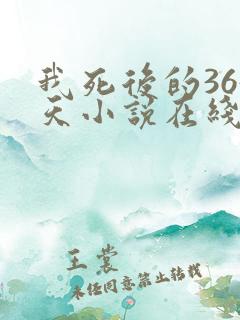 我死後的36
天小說在綫
王裳
未经同意禁止转载